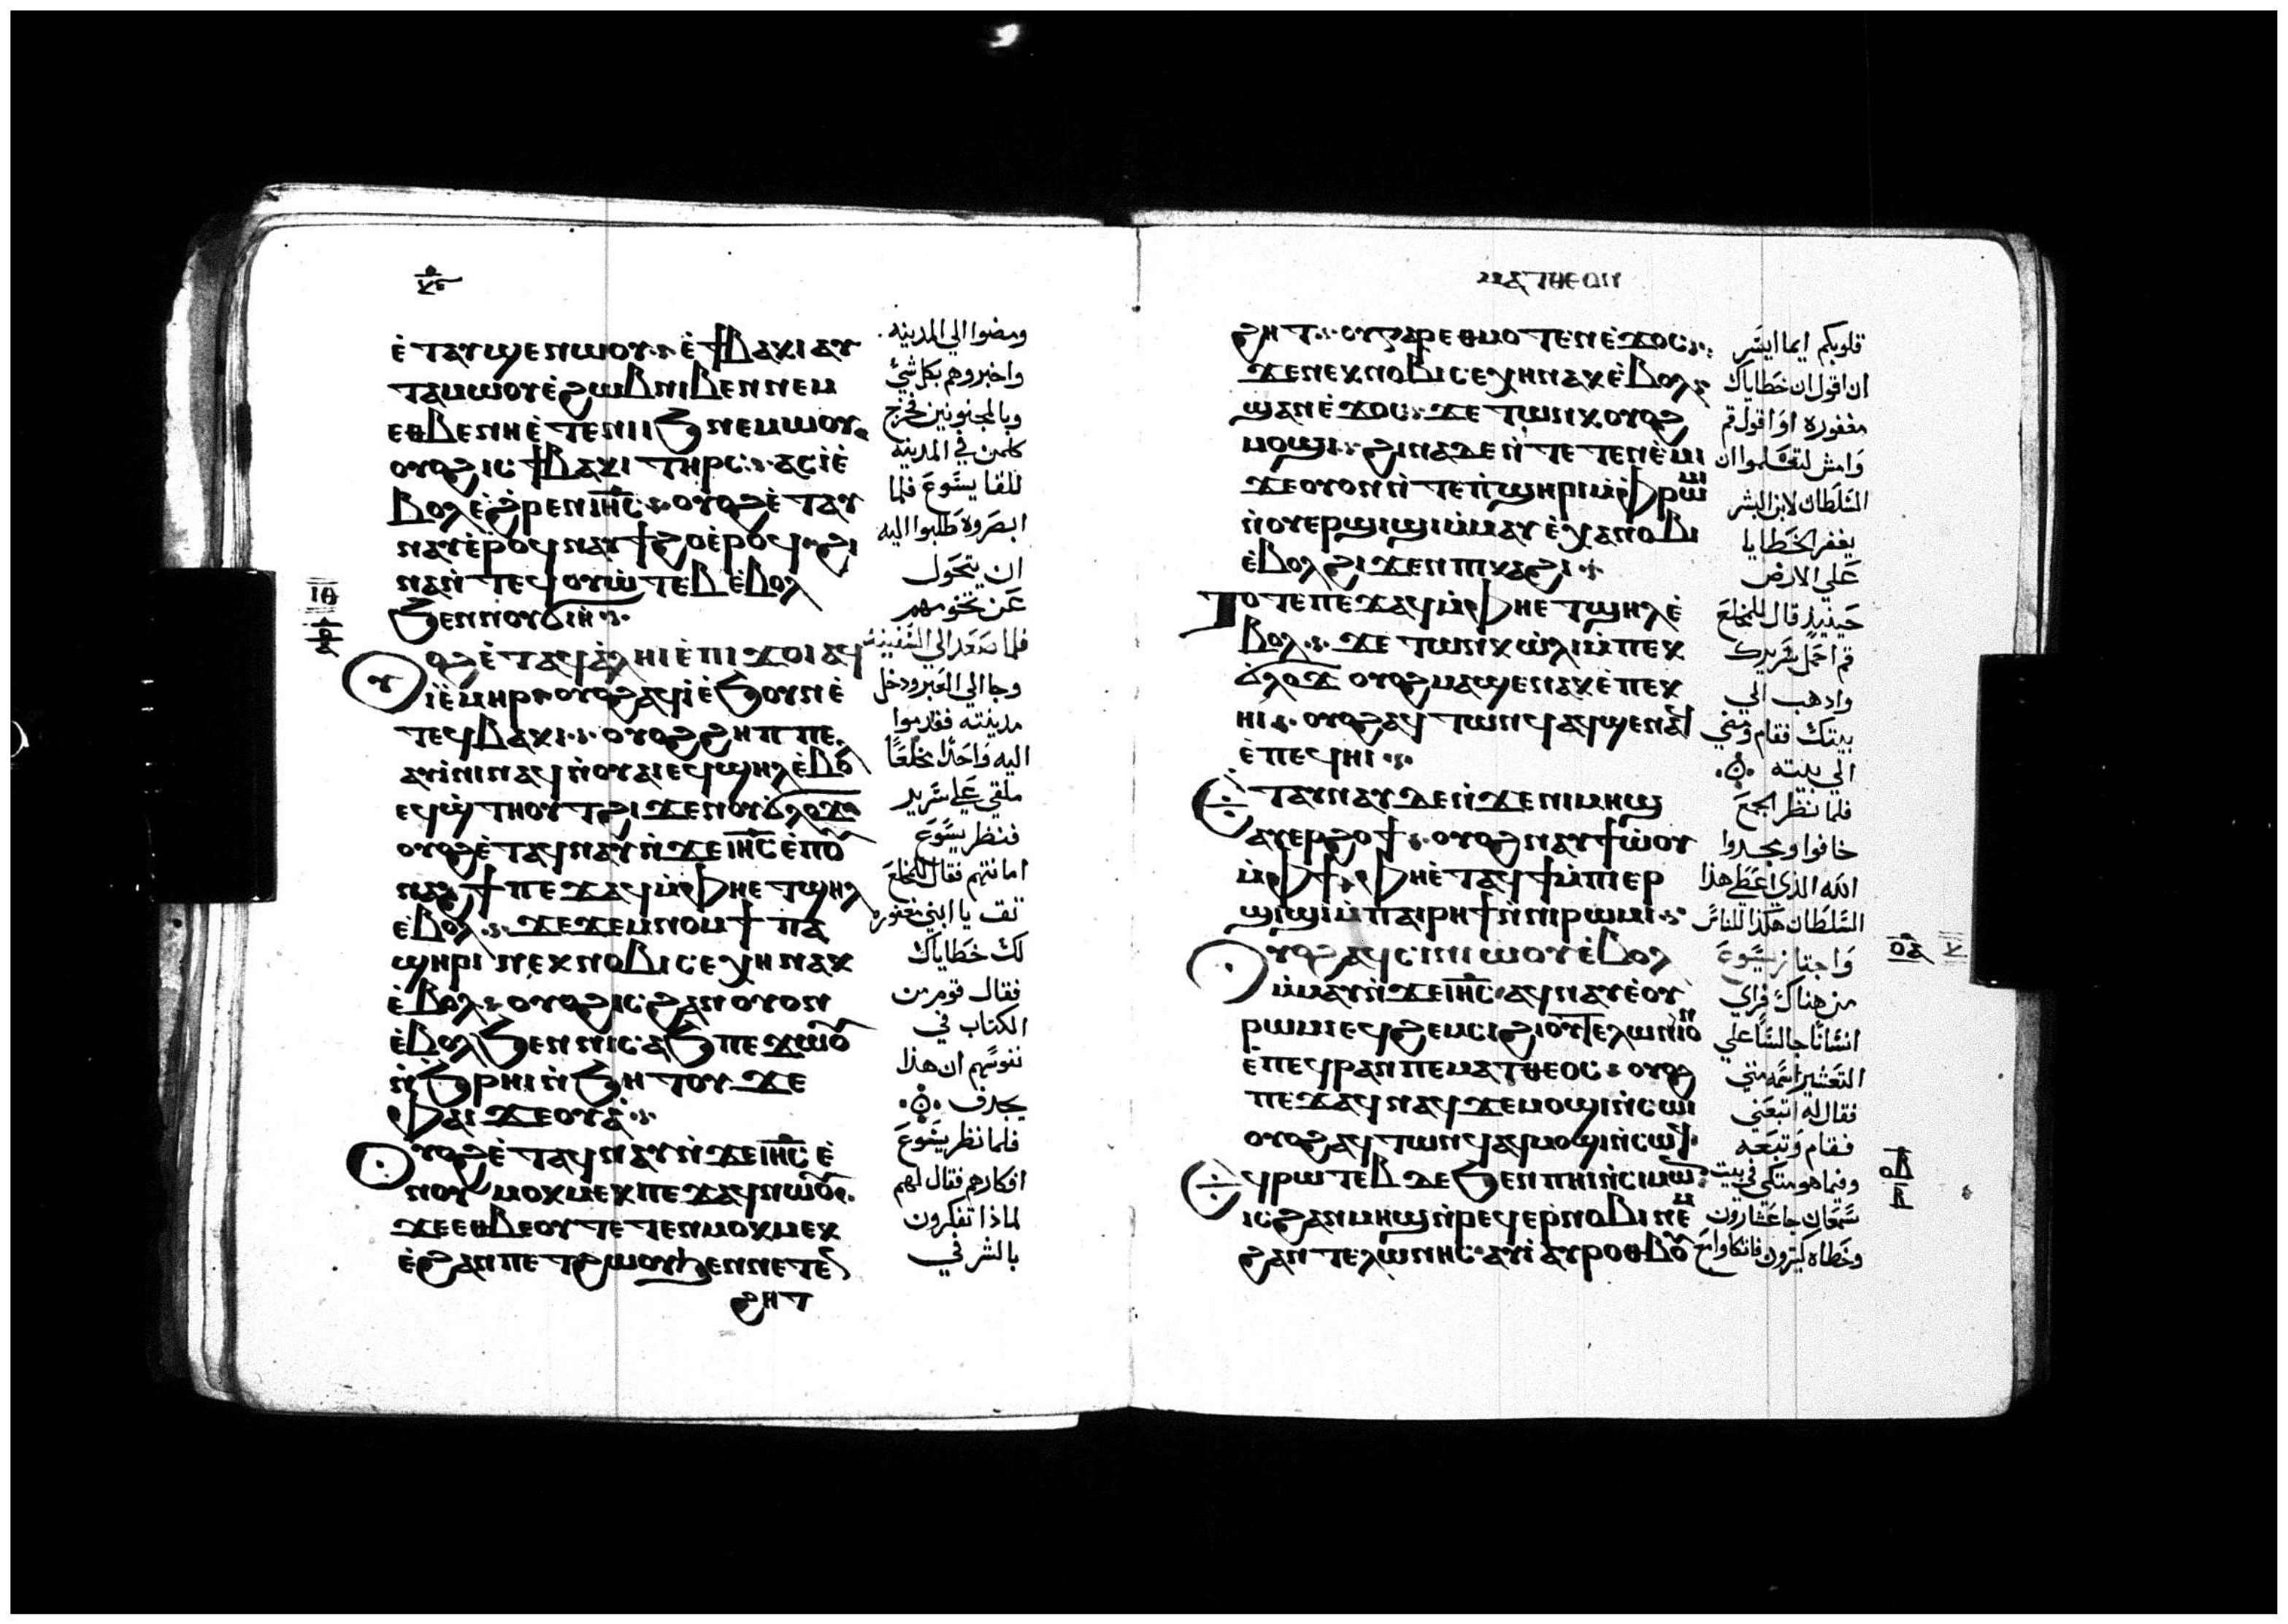 ⲉ̀ⲧⲁⲩϣⲉⲛⲱⲟⲩ ⲉ̀ϯⲃⲁⲕⲓ ⲁⲩ
ⲧⲁⲙⲱⲟⲩ ⲉ̀ϩⲱⲃ ⲛⲓⲃⲉⲛ ⲛⲉⲙ
ⲉⲑⲃⲉ ⲛⲏ ⲉ̀ⲧⲉ ⲛⲓⲓϧ ⲛⲉⲙⲱⲟⲩ
ⲟⲩⲟϩ ⲓⲥ ϯⲃⲁⲕⲓ ⲧⲏⲣⲥ ⲁⲥⲓ̀ ⲉ̀
ⲃⲟⲗ ⲉ̀ϩⲣⲉⲛ ⲓⲏⲥ ⲟⲩⲟϩ ⲉ̀ⲧⲁⲩ
ⲛⲁⲩ ⲉ̀ⲣⲟϥ ⲛⲁⲩϯϩⲟ ⲉ̀ⲣⲟϥ ϩⲓ
ⲛⲁ ⲛ̀ⲧⲉϥⲟⲩⲱ̀ⲧⲉⲃ ⲉ̀ⲃⲟⲗ
ϧⲉⲛ ⲛⲟⲩϭⲓⲏ
ⲟⲩⲟϩ ⲉ̀ⲧⲁϥⲁ̀ⲗⲏⲓ ⲉ̀ⲡⲓϫⲟⲓ ⲁϥ
ⲓ̀ ⲉ̀ⲙⲏⲣ ⲟⲩⲟϩ ⲁϥⲓ̀ ⲉ̀ϧⲟⲩⲛ ⲉ̀
ⲧⲉϥⲃⲁⲕⲓ ⲟⲩⲟϩ ϩⲏⲡⲡⲉ
ⲁⲩⲓ̀ⲛⲓ ⲛⲁϥ ⲛ̀ⲟⲩⲁⲓ ⲉϥϣⲏⲗ ⲉ̀ⲃⲟⲗ
ⲉϥϣ̀ⲧⲏⲟⲩⲧ ϩⲓϫⲉⲛ ⲟⲩϭⲗⲟϫ
ⲟⲩⲟϩ ⲉ̀ⲧⲁϥⲛⲁⲩ ⲛ̀ϫⲉ ⲓⲏⲥ ⲉ̀ⲡⲟⲩ
ⲛⲁϩϯ ⲡⲉϫⲁϥ ⲙ̀ⲫⲏ ⲉⲧϣⲏⲗ
ⲉ̀ⲃⲟⲗ ϫⲉ ϫⲉⲙⲛⲟⲙϯ ⲡⲁ
ϣⲏⲣⲓ ⲛⲉⲕⲛⲟⲃⲓ ⲥⲉⲭⲏ ⲛⲁⲕ
ⲉ̀ⲃⲟⲗ ⲟⲩⲟϩ ⲓⲥ ϩⲁⲛⲟⲩⲟⲛ
ⲉ̀ⲃⲟⲗ ϧⲉⲛ ⲛⲓⲥⲁϧ ⲡⲉϫⲱⲟⲩ
ⲛ̀ϧⲣⲏⲓ ⲛ̀ϧⲏⲧⲟⲩ ϫⲉ
ⲫⲁⲓ ϫⲉⲟⲩⲁ̀
ⲟⲩⲟϩ ⲉ̀ⲧⲁϥⲛⲁⲩ ⲛ̀ϫⲉ ⲓⲏⲥ ⲉ̀
ⲛⲟⲩⲙⲟⲕⲙⲉⲕ ⲡⲉϫⲁϥ ⲛⲱⲟⲩ
ϫⲉ ⲉⲑⲃⲉ ⲟⲩ ⲧⲉⲧⲉⲛⲙⲟⲕⲙⲉⲕ
ⲉ̀ϩⲁⲛⲡⲉⲧϩⲱⲟⲩ ϧⲉⲛ ⲛⲉⲧⲉⲛ
ϩⲏⲧ
ومضوا الي المدينه
واخبروهم بكل شي
وبالمجنونين فخرج
كلمن في المدينه
للقا يسوع فلما
ابصروه طلبوا اليه
ان يتحول
عن تخومهم
فلما صعد الي السفينه
وجا الي العبر ودخل
مدينته فقدموا
اليه واحدا مخلعا
ملقي علي سرير
فنظر يسوع
امانتهم فقال للمخلع
ثق يا ابني مغفوره
لك خطاياك
فقال قوم من
الكتاب في
نفوسهم ان هذا
يجدف
فلما نظر يسوع
افكارهم فقال لهم
لماذا تفكرون
بالشر في
ⲙⲁⲧⲑⲉⲟⲛ
ϩⲏⲧ ⲟⲩ ⲅⲁⲣ ⲉⲑⲙⲟⲧⲉⲛ ⲉ̀ϫⲟⲥ
ϫⲉ ⲛⲉⲕⲛⲟⲃⲓ ⲥⲉⲭⲏ ⲛⲁⲕ ⲉ̀ⲃⲟⲗ
ϣⲁⲛ ⲉ̀ϫⲟⲥ ϫⲉ ⲧⲱⲛⲕ ⲟⲩⲟϩ
ⲙⲟϣⲓ ϩⲓⲛⲁ ⲇⲉ ⲛ̀ⲧⲉⲧⲉⲛⲉ̀ⲙⲓ
ϫⲉ ⲟⲩⲟⲛ ⲛ̀ⲧⲉ ⲡ̀ϣⲏⲣⲓ ⲙ̀ⲫⲣⲱⲙⲓ
ⲛ̀ⲟⲩⲉⲣϣⲓϣⲓ ⲙ̀ⲙⲁⲩ ⲉ̀ⲭⲁ ⲛⲟⲃⲓ
ⲉ̀ⲃⲟⲗ ϩⲓϫⲉⲛ ⲡⲓⲕⲁϩⲓ
ⲧⲟⲧⲉ ⲡⲉϫⲁϥ ⲙ̀ⲫⲏ ⲉⲧϣⲏⲗ ⲉ̀
ⲃⲟⲗ ϫⲉ ⲧⲱⲛⲕ ⲱ̀ⲗⲓ ⲙ̀ⲡⲉⲕ
ϭ̀ⲗⲟϫ ⲟⲩⲟϩ ⲙⲁϣⲉⲛⲁⲕ ⲉ̀ⲡⲉⲕ
ⲏⲓ ⲟⲩⲟϩ ⲁϥⲧⲱⲛϥ ⲁϥϣⲉⲛⲁϥ
ⲉ̀ⲡⲉϥⲏⲓ
ⲉ̀ⲧⲁⲩⲛⲁⲩ ⲇⲉ ⲛ̀ϫⲉ ⲛⲓⲙⲏϣ
ⲁⲩⲉⲣϩⲟϯ ⲟⲩⲟϩ ⲛⲁⲩϯⲱ̀ⲟⲩ
ⲙ̀ⲫϯ ⲫⲏ ⲉ̀ⲧⲁϥϯ ⲙ̀ⲡⲓⲉⲣ
ϣⲓϣⲓ ⲙ̀ⲡⲁⲓⲣⲏϯ ⲛ̀ⲛⲓⲣⲱⲙⲓ
ⲟⲩⲟϩ ⲁϥⲥⲓⲛⲓⲱⲟⲩ ⲉ̀ⲃⲟⲗ
ⲙ̀ⲙⲁⲩ ⲛ̀ϫⲉ ⲓⲏⲥ ⲁϥⲛⲁⲩ ⲉ̀ⲟⲩ
ⲣⲱⲙⲓ ⲉϥϩⲉⲙⲥⲓ ϩⲓ ⲟⲩⲧⲉⲗⲱⲛⲓⲟⲛ
ⲉ̀ⲡⲉϥⲣⲁⲛ ⲡⲉ ⲙⲁⲧⲑⲉⲟⲥ ⲟⲩⲟϩ
ⲡⲉϫⲁϥ ⲛⲁϥ ϫⲉ ⲙⲟϣⲓ ⲛ̀ⲥⲱⲓ
ⲟⲩⲟϩ ⲁϥⲧⲱⲛϥ ⲁϥⲙⲟϣⲓ ⲛ̀ⲥⲱϥ
ⲉϥⲣⲱⲧⲉⲃ ⲇⲉ ϧⲉⲛ ⲡⲏⲓ ⲛ̀ⲥⲓⲙⲱⲛ
ⲓⲥ ϩⲁⲛⲙⲏϣ ⲛ̀ⲣⲉϥⲉⲣⲛⲟⲃⲓ ⲛⲉⲙ
ϩⲁⲛⲧⲉⲗⲱⲛⲏⲥ ⲁⲩⲓ̀ ⲁⲩⲣⲟⲑⲃⲟⲩ
قلوبكم ايما ايسر
ان اقول ان خطاياك
مغفوره او اقول قم
وامش لتعلموا ان
السلطان لابن البشر
يغفر الخطايا
علي الارض
حينيذ قال للمخلع
قم احمل سريرك
واذهب الي
بيتك فقام ومضي
الي بيته
فلما نظر الجمع
خافوا ومجدوا
الله الذي اعطي هذا
السلطان هكذا للناس
واجتاز يسوع
من هناك فراي
انسانا جالسا علي
التعشير اسمه متي
فقال له اتبعني
فقام وتبعه
وفيما هو متكي في بيت
سمعان جا عشارون
وخطاه كثيرون فاتكاوا مع